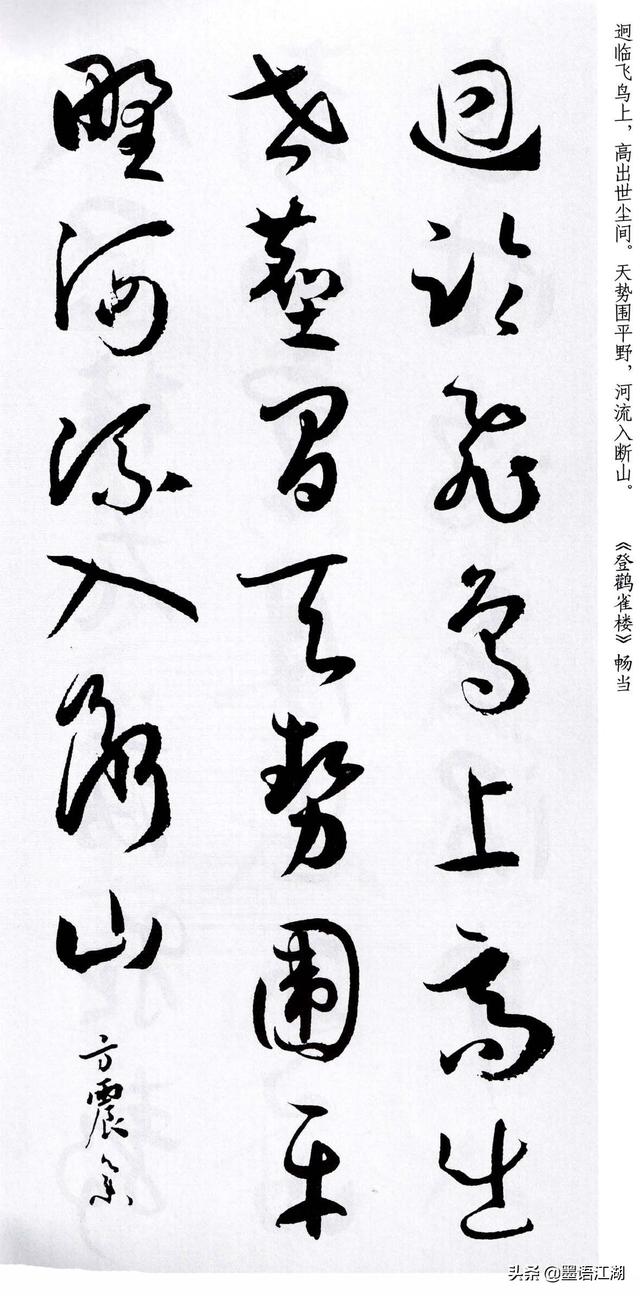 迥临飞鸟上，高出世尘间。天势围平野，河流入断山。 《登鹳雀楼》畅当
迥臨飛鳥上高出
世塵間天勢圍平
野河流入断山
方震
头条 @墨语江湖